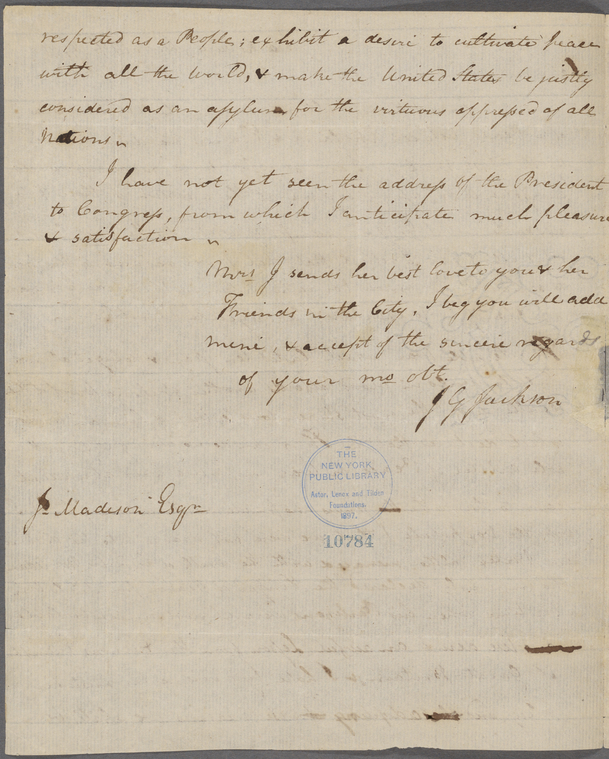 respected as a People; exhibit a desire to cultivate peace
with all the World, & make the United States be justly
considered as an asylum for the virtuous oppressed of all
Nations
I have not yet seen the address of the President
to Congress, from which I anticipate much pleasure
& satisfaction
Mrs J sends her best love to you & her
Friends in the City, I beg you will add
mine, & accept of the sincere regards
of your mo obt.
J G Jackson
THE
NEW YORK
PUBLIC LIBRARY
Astor, Lenox and Tilden
Foundations.
1897.
10784
Js Madison Esqr